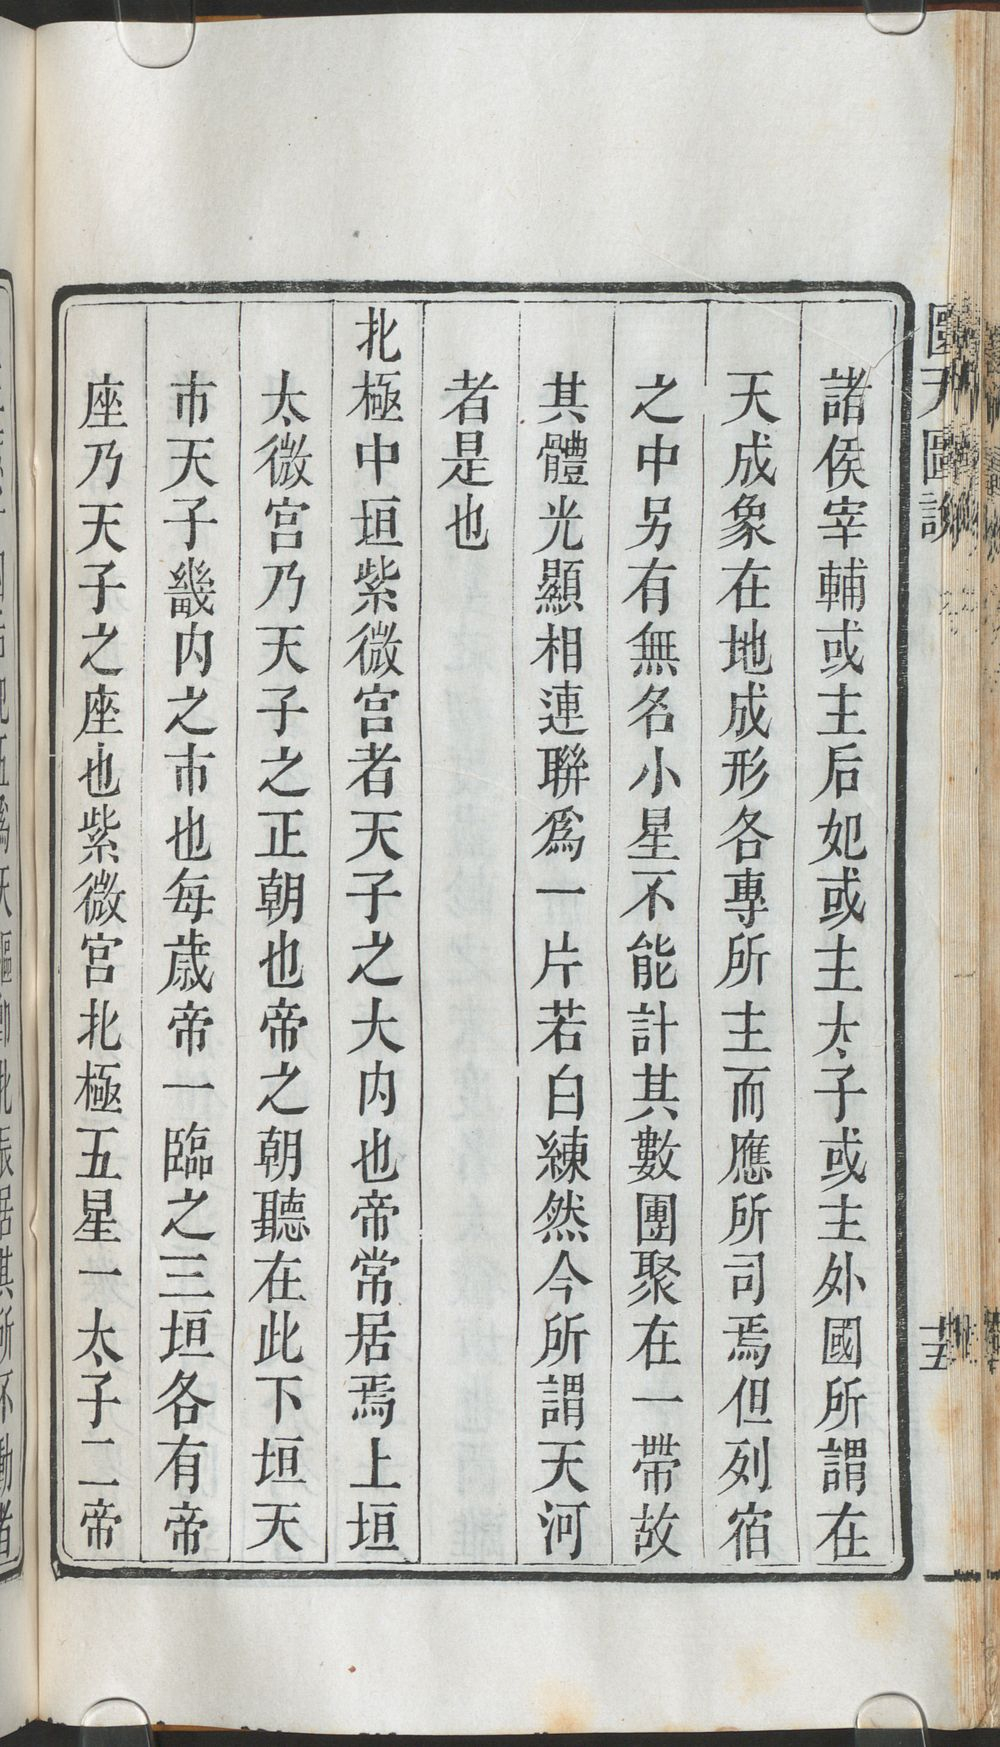 圜天圖說
十五
諸侯宰輔或主后妃或主太子或主外國所謂在
天成象在地成形各專所主而應所司焉但列宿
之中另有無名小星不能計其數團聚在一帶故
其體光顯相連聯爲一片若白練然今所謂天河
者是也
北極中垣紫微宮者天子之大內也帝常居焉上垣
太微宮乃天子之正朝也帝之朝聽在此下垣天
市天子畿内之市也每歲帝一臨之三垣各有帝
座乃天子之座也紫微宮北極五星一太子二帝